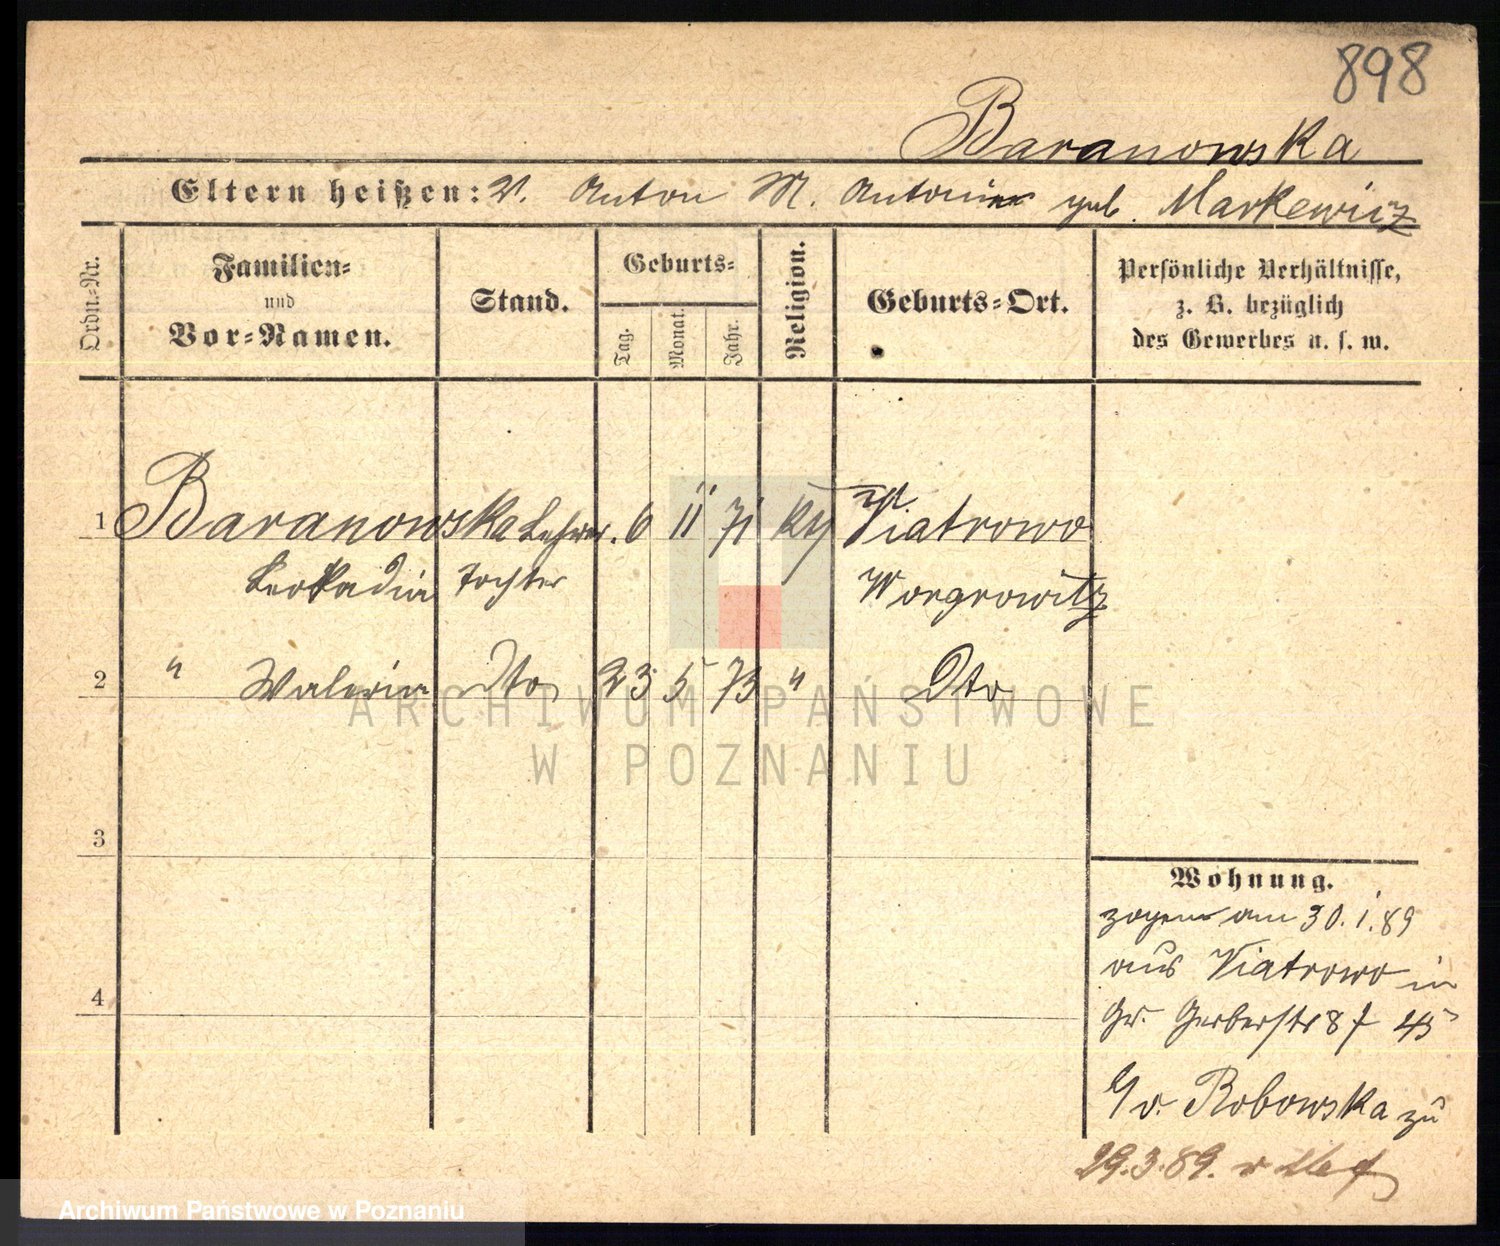 898
Baranowska
Eltern heißen: V. Anton M. Antonina geb. Markewicz
Ordn.-Nr.
Familien-
und
Vor-Namen.
Stand.
Geburts-
Tag.
Monat.
Jahr.
Religion.
Geburts-Ort.
Persönliche Verhältnisse,
z. B. bezüglich
des Gewerbes u. s. w.
1 Baranowska Lehrer. 6 11 71 kth Wiatrowo
Leokadia Tochter Wongrowitz
2 " Waleria Dto 23 5 73 " Dto
3
4
Wohnung.
zogen am 30.1.89
aus Wiatrowo in
Gr. Gerberstr 8 f 45
v. Robowska zu
29.3.89. v
ARCHIWUM PAŃSTWOWE
W POZNANIU
Archiwum Państwowe w Poznaniu